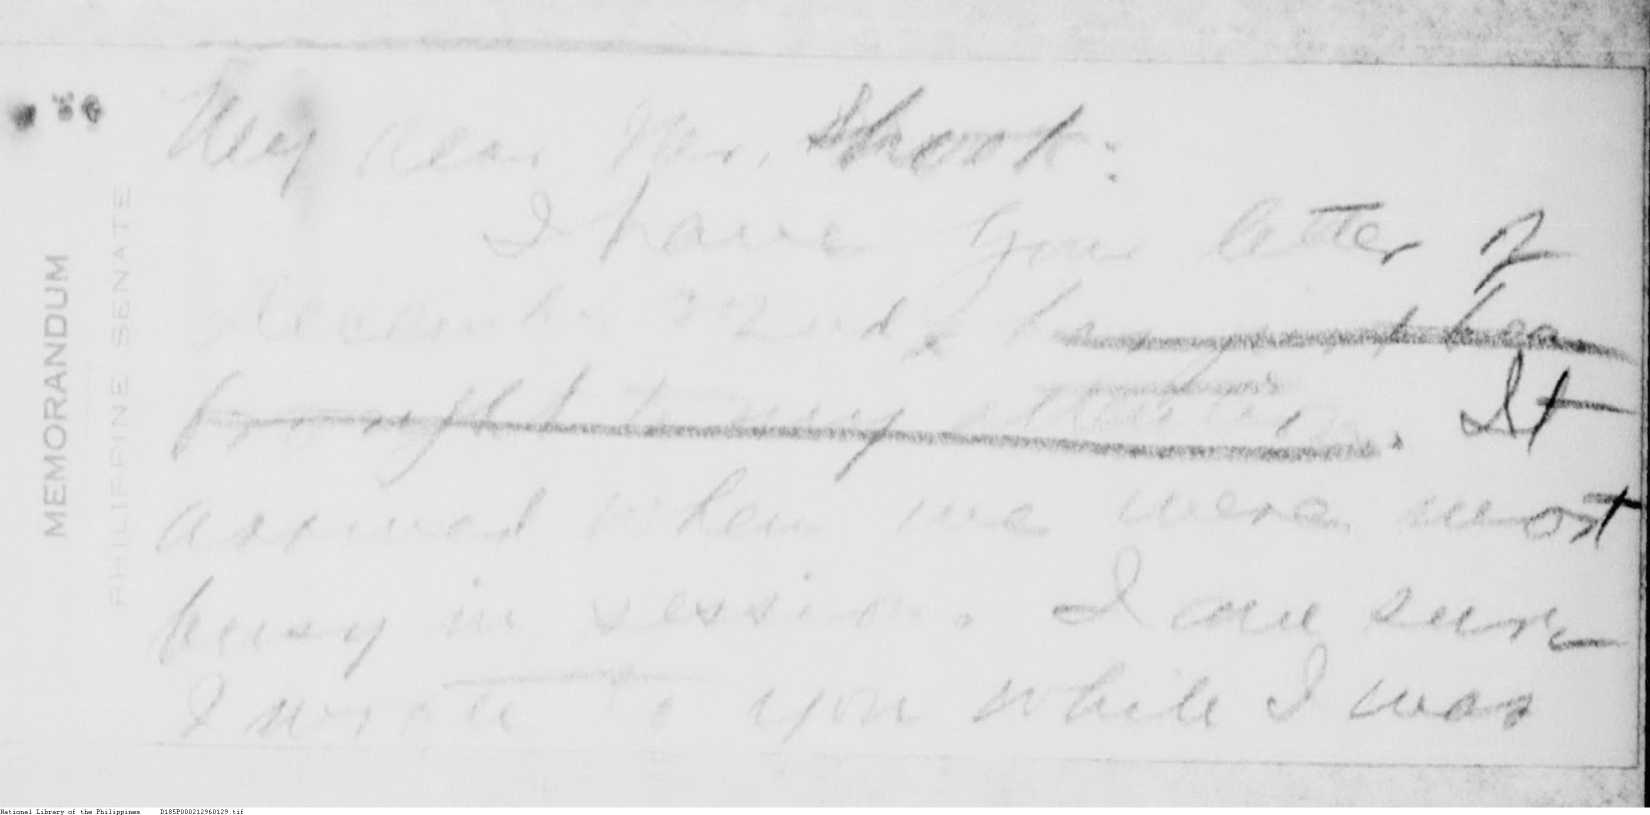 MEMORANDUM
PHILIPPINE SENATE
My dear Mr. Shook:
I have your letter of
December 22nd, has just been
brought to my attention. It
arrived when we were most
busy in session. I am sure
I wrote to you while I was
National Library of the Philippines D185P000212960129.tif